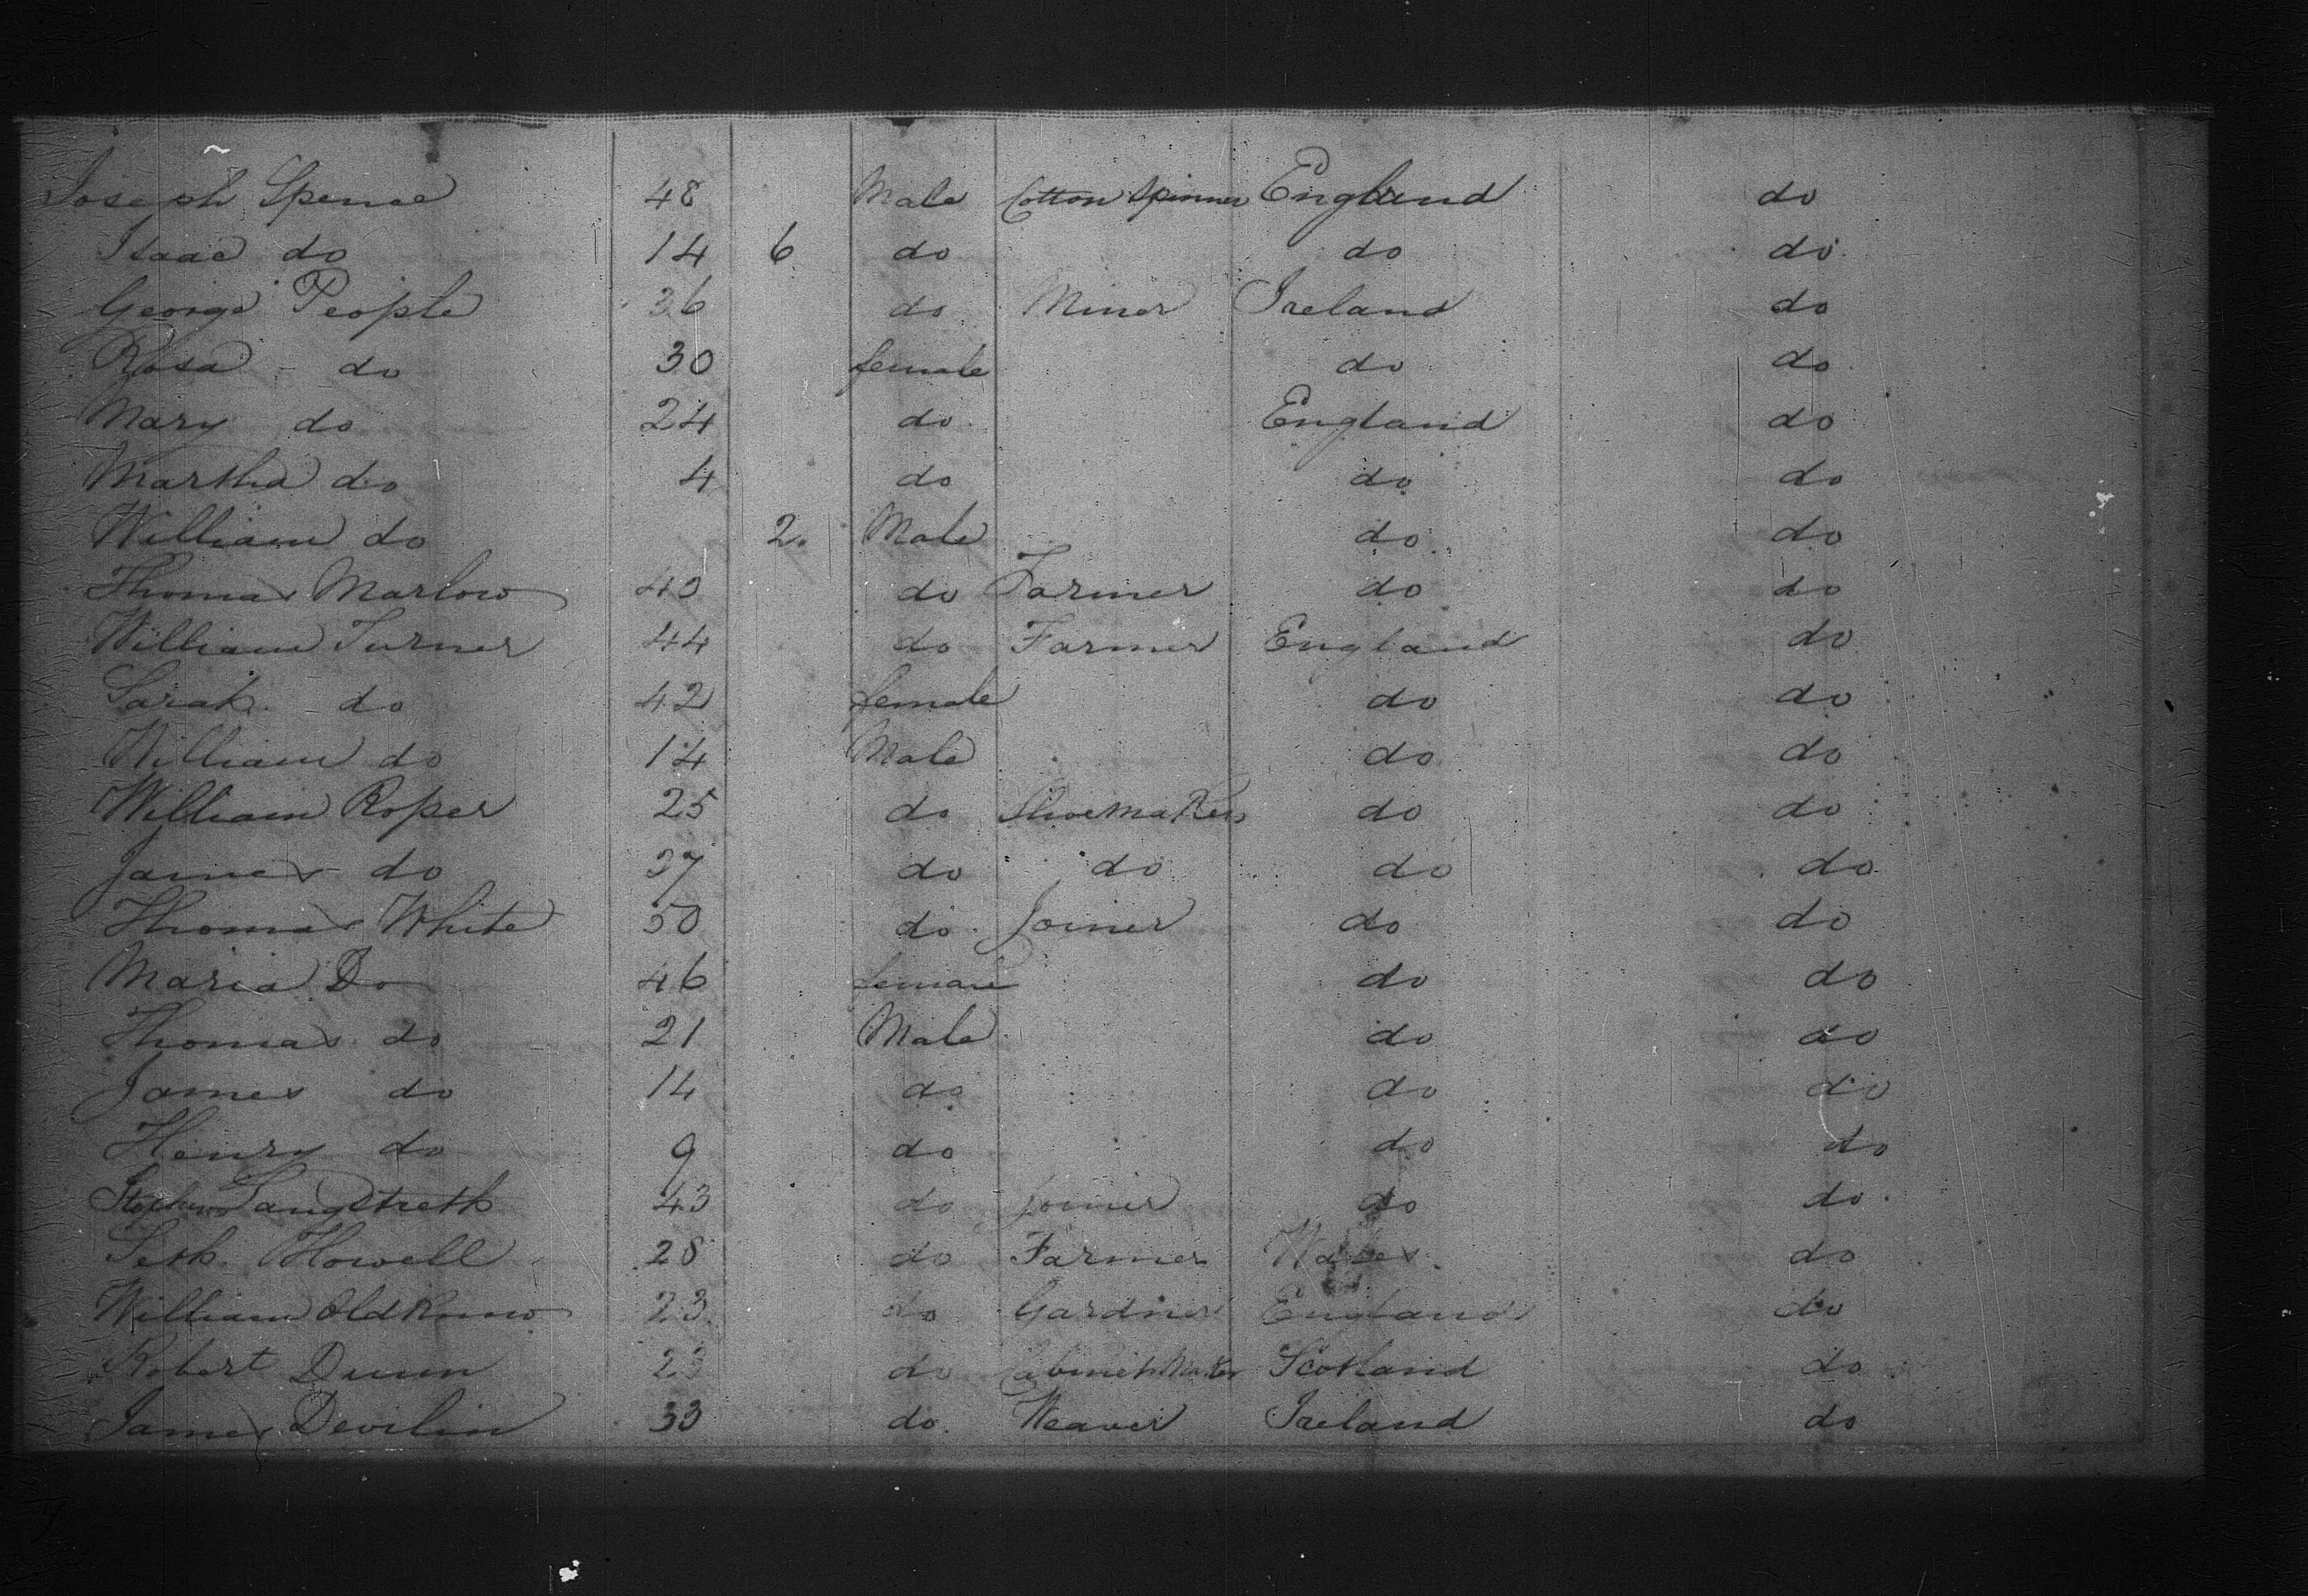 Joseph Spence 48 Male Cotton Spinner England do
Isaac do 14 6 do do do
George People 36 do Miner Ireland do
Rosa do 30 female do do
Mary do 24 do England do
Martha do 4 do do do
William do 2. Male do do
Thomas Marlow 43 do Farmer do do
William Turner 44 do Farmer England do
Sarah do 42 female do do
William do 14 Male do do
William Roper 25 do Shoemaker do do
James do 27 do do do do
Thomas White 50 do Joiner do do
Maria Do 46 female do do
Thomas do 21 Male do do
James do 14 do do do
Henry do 9 do do do
Stephen 43 do Joiner do do
Seth Howell 28 do Farmer Wales do
William Oldknow 23 do Gardner England do
Robert Dunn 23 do Cabinet Maker Scotland do
James Devilin 33 do Weaver Ireland do